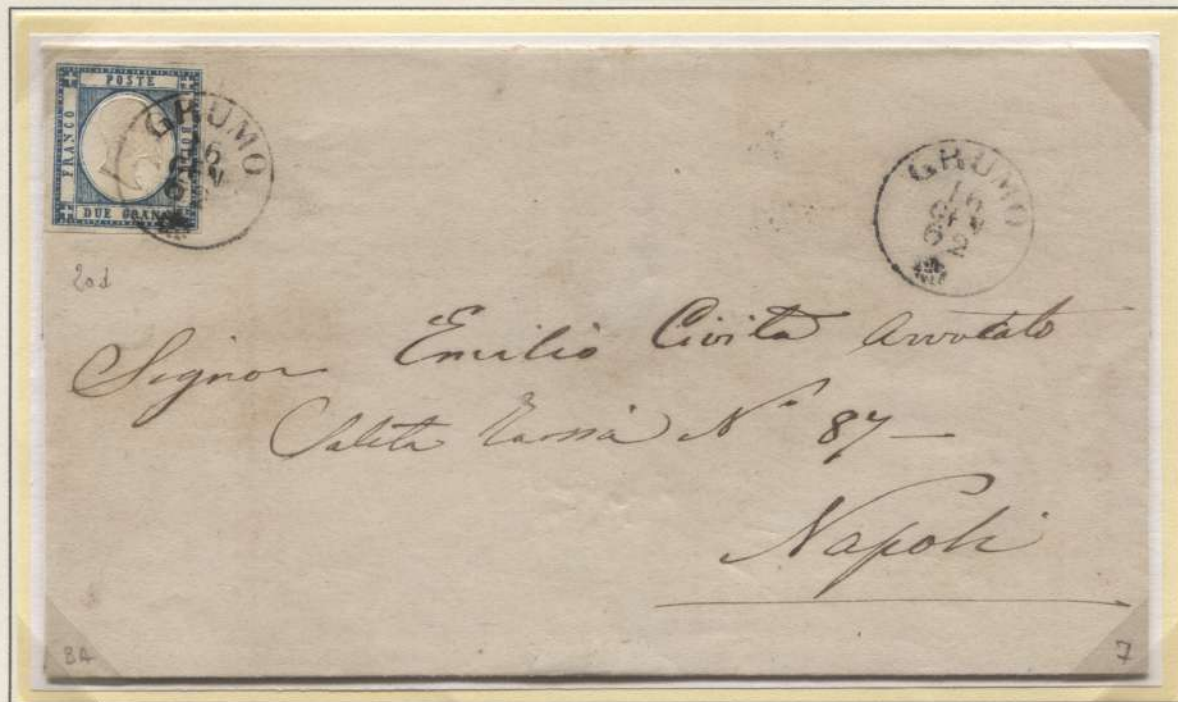 POSTE
FRANCO
DUE GRANA
GRUMO
16
GEN
GRUMO
16
GEN
62
20d
Signor Emilio Civita Avvocato
Salita Tarsia N° 87 —
Napoli
BA
7